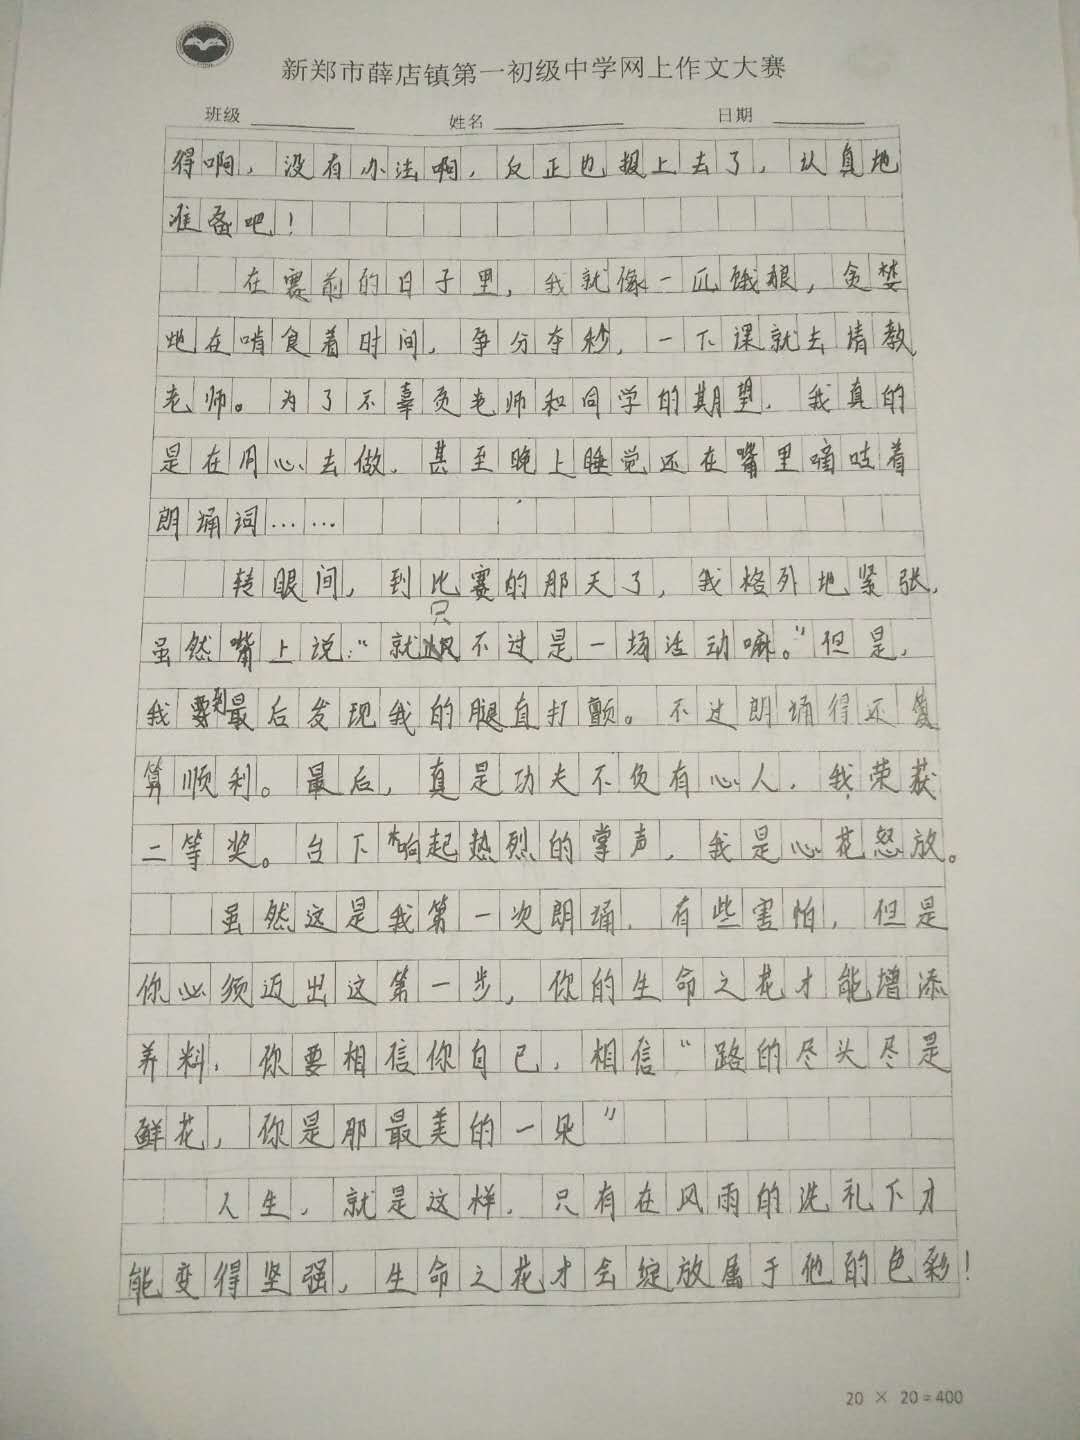 新郑市薛店镇第一初级中学网上作文大赛
班级 姓名 日期
得啊，没有办法啊，反正也报上去了，认真地
准备吧！
在赛前的日子里，我就像一匹饿狼，贪婪
地在啃食着时间，争分夺秒，一下课就去请教
老师。为了不辜负老师和同学的期望，我真的
是在用心去做，甚至晚上睡觉还在嘴里嘀咕着
朗诵词……
转眼间，到比赛的那天了，我格外地紧张，
虽然嘴上说：“就只不过是一场活动嘛。”但是，
我到最后发现我的腿直打颤。不过朗诵得还
算顺利。最后，真是功夫不负有心人，我荣获
二等奖。台下响起热烈的掌声，我是心花怒放。
虽然这是我第一次朗诵，有些害怕，但是
你必须迈出这第一步，你的生命之花才能增添
养料，你要相信你自己，相信“路的尽头尽是
鲜花，你是那最美的一朵”
人生，就是这样，只有在风雨的洗礼下才
能变得坚强，生命之花才会绽放属于他的色彩！
20 × 20=400